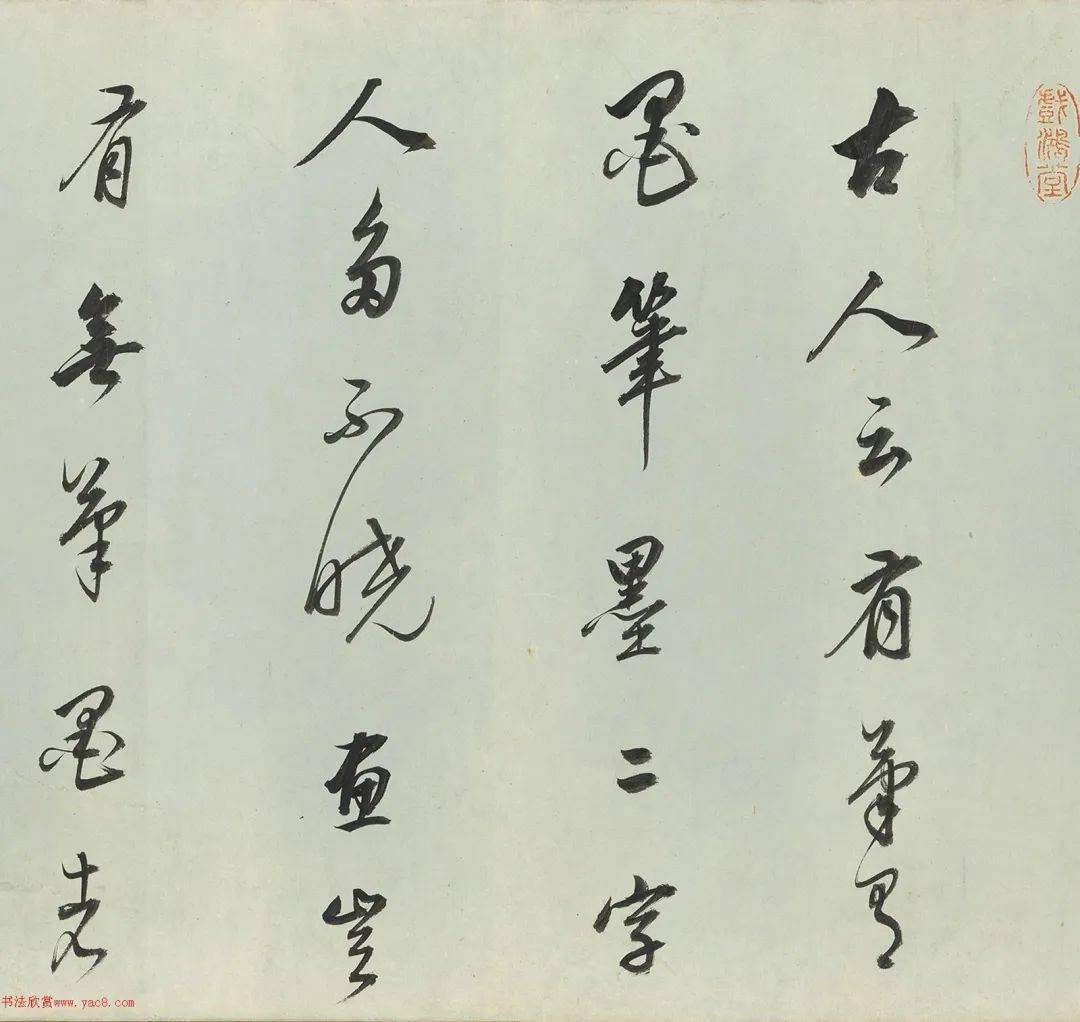 戲鴻堂
古人云有筆有
墨筆墨二字
人多不曉畫豈
有無筆墨者
书法欣赏www.yac8.com